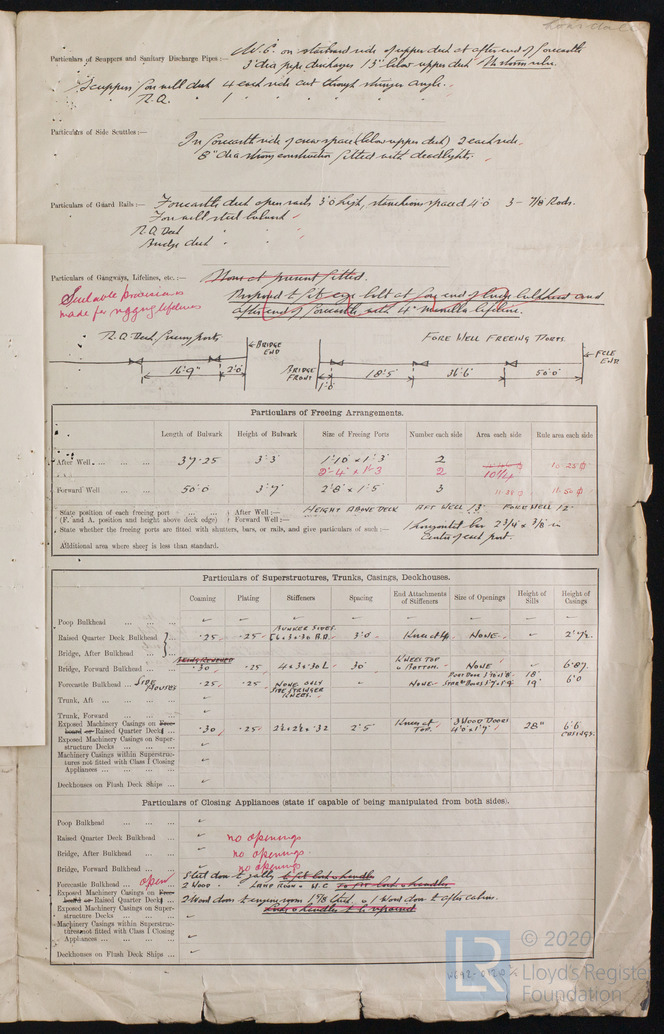 Particulars of Scuppers and Sanitary Discharge Pipes :— W.C. on starboard side of upper deck at after end of forecastle
3" dia pipe discharges 13" below upper deck
Scuppers for well deck 4 each side cut through stringer angle.
R.Q. " 1 "
Particulars of Side Scuttles :—
In forecastle side of crew space (below upper deck) 2 each side.
8" dia strong construction fitted with deadlights.
Particulars of Guard Rails :— Forecastle deck open rails 3'0 high, stanchions spaced 4'0 3 - 7/8 Rods.
Fore well steel bulwark
R.Q. Deck "
Bridge deck "
Particulars of Gangways, Lifelines, etc. :— None at present fitted.
Suitable provision is made for rigging lifelines
Proposed to fit eye bolt at fore end of bridge bulkhead and
after end of forecastle with 4" manilla lifeline.
R.Q. Deck freeing ports
BRIDGE END
16'9"
2'0"
FORE WELL FREEING PORTS.
BRIDGE FRONT
1'6
18'5"
36'6"
50'0"
FCLE END
Particulars of Freeing Arrangements.
Length of Bulwark Height of Bulwark Size of Freeing Ports Number each side Area each side Rule area each side
After Well ... 37·25 3'3" 1'10" x 1'3" 2 10·25
2'-4" x 1'-3 2
Forward Well 50'0 3'7" 2'8" x 1'5" 3 11·50
State position of each freeing port ... } After Well :— HEIGHT ABOVE DECK AFT WELL 13" FORE WELL 12"
(F. and A. position and height above deck edge) } Forward Well :—
State whether the freeing ports are fitted with shutters, bars, or rails, and give particulars of such :— 1 horizontal bar 2 3/4" x 3/8" in
Centre of each port.
Additional area where sheer is less than standard.
Particulars of Superstructures, Trunks, Casings, Deckhouses.
Coaming Plating Stiffeners Spacing End Attachments of Stiffeners Size of Openings Height of Sills Height of Casings
Poop Bulkhead
BUNKER SIDES
Raised Quarter Deck Bulkhead ·25 ·25 3'0 NONE
Bridge, After Bulkhead
Bridge, Forward Bulkhead ·30 ·25 4 x 3 x ·30 L 30" KNEES TOP & BOTTOM. NONE 6·87
Forecastle Bulkhead SIDE HOUSES ·25 ·25 NONE ONLY SIDE STRINGER KNEES. NONE 18" 19" 6'0
Trunk, Aft
Trunk, Forward
Exposed Machinery Casings on Freeboard or Raised Quarter Decks ·30 ·25 2½ x 2½ x ·32 2'5" Knees at TOP. 3 WOOD DOORS 4'0 x 1'9" 28" 6'6 CASINGS.
Exposed Machinery Casings on Superstructure Decks
Machinery Casings within Superstructures not fitted with Class I Closing Appliances
Deckhouses on Flush Deck Ships
Particulars of Closing Appliances (state if capable of being manipulated from both sides).
Poop Bulkhead
Raised Quarter Deck Bulkhead no openings
Bridge, After Bulkhead no openings
Bridge, Forward Bulkhead no openings
Forecastle Bulkhead open Steel door to galley to fit lock & handles
2 Wood " LAMP ROOM & W.C. to fit lock & handles
Exposed Machinery Casings on Freeboard or Raised Quarter Decks 2 Wood doors to engine room 1 7/8 thick & 1 Wood door to after cabin.
Exposed Machinery Casings on Superstructure Decks Locks & handles to be repaired
Machinery Casings within Superstructures not fitted with Class I Closing Appliances
Deckhouses on Flush Deck Ships
LR
© 2020
Lloyd's Register
Foundation